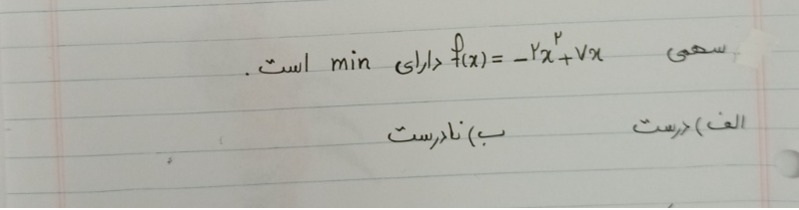 سهمی f(x) = -۲x^۲ + ۷x دارای min است.
الف) درست ب) نادرست